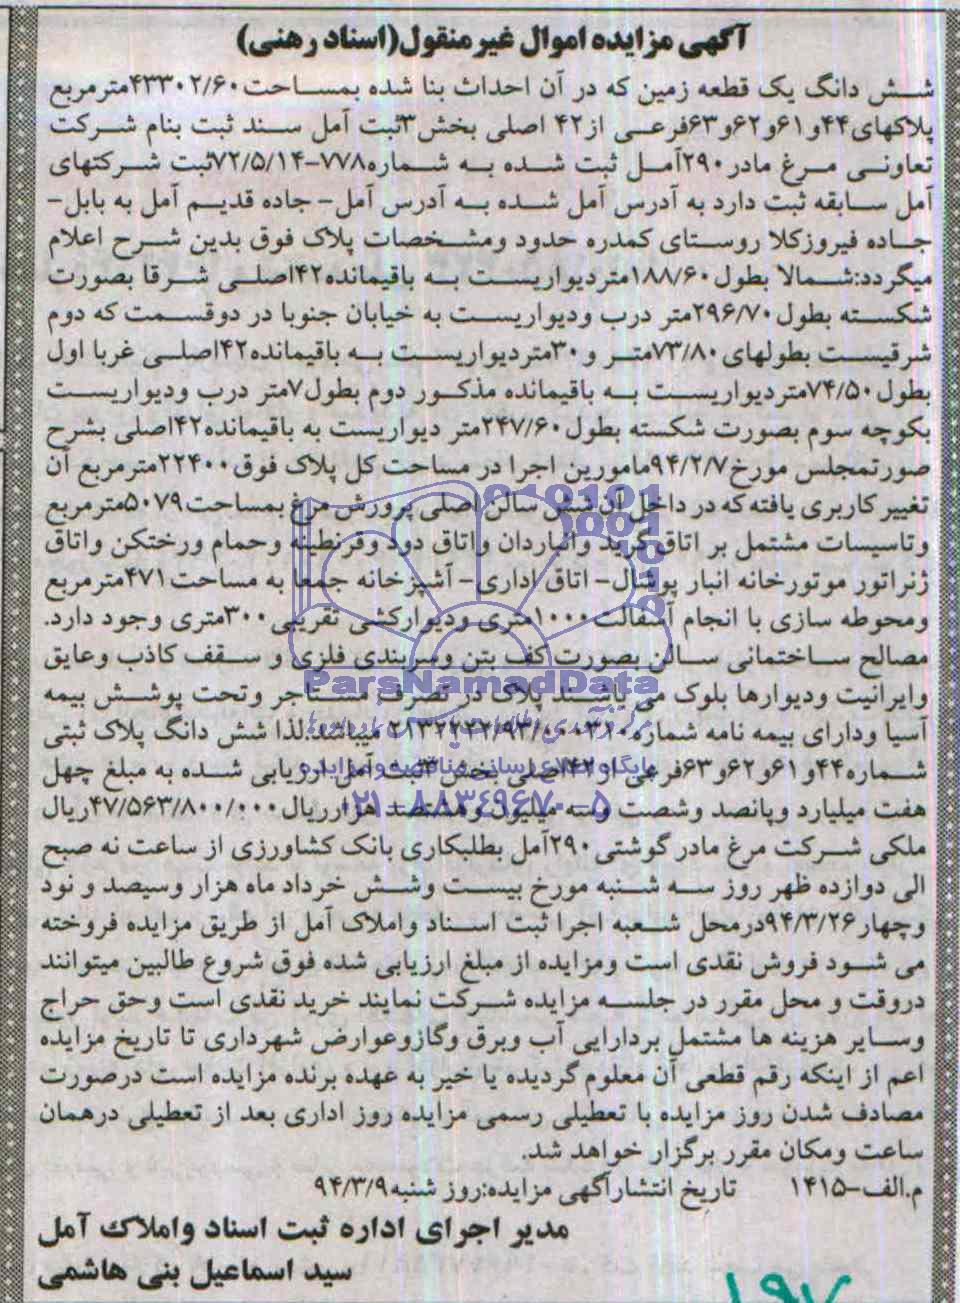 آگهی مزایده اموال غیرمنقول(اسناد رهنی)
شش دانگ یک قطعه زمین که در آن احداث بنا شده بمساحت۴۳۳۰۲/۶۰مترمربع
پلاکهای۴۴و۶۱و۶۲و۶۳فرعی از۴۲ اصلی بخش۳ثبت آمل سند ثبت بنام شرکت
تعاونی مرغ مادر۲۹۰آمل ثبت شده به شماره۷۷۸-۷۲/۵/۱۴ثبت شرکتهای
آمل سابقه ثبت دارد به آدرس آمل شده به آدرس آمل- جاده قدیم آمل به بابل-
جاده فیروزکلا روستای کمدره حدود ومشخصات پلاک فوق بدین شرح اعلام
میگردد:شمالا بطول۱۸۸/۶۰متردیواریست به باقیمانده۴۲اصلی شرقا بصورت
شکسته بطول۲۹۶/۷۰متر درب ودیواریست به خیابان جنوبا در دوقسمت که دوم
شرقیست بطولهای۷۳/۸۰متر و۳۰متردیواریست به باقیمانده۴۲اصلی غربا اول
بطول۷۴/۵۰متردیواریست به باقیمانده مذکور دوم بطول۷متر درب ودیواریست
بکوچه سوم بصورت شکسته بطول۲۴۷/۶۰متر دیواریست به باقیمانده۴۲اصلی بشرح
صورتمجلس مورخ۹۴/۲/۷مامورین اجرا در مساحت کل پلاک فوق۲۲۴۰۰مترمربع آن
تغییر کاربری یافته که در داخل آن شش سالن اصلی پرورش مرغ بمساحت۵۰۷۹مترمربع
وتاسیسات مشتمل بر اتاق گرید وانباردان واتاق دود وقرنطینه وحمام ورختکن واتاق
ژنراتور موتورخانه انبار پوشال- اتاق اداری- آشپزخانه جمعا به مساحت۴۷۱مترمربع
ومحوطه سازی با انجام آسفالت۱۰۰۰متری ودیوارکشی تقریبی۳۰۰متری وجود دارد.
مصالح ساختمانی سالن بصورت کف بتن وسربندی فلزی و سقف کاذب وعایق
وایرانیت ودیوارها بلوک می باشند پلاک در تصرف مستاجر وتحت پوشش بیمه
آسیا ودارای بیمه نامه شماره میباشد.لذا شش دانگ پلاک ثبتی
شماره۴۴و۶۱و۶۲و۶۳فرعی از۴۲اصلی بخش۳ثبت آمل ارزیابی شده به مبلغ چهل
هفت میلیارد وپانصد وشصت وسه میلیون وهشتصد هزارریال۴۷/۵۶۳/۸۰۰/۰۰۰ریال
ملکی شرکت مرغ مادر گوشتی۲۹۰آمل بطلبکاری بانک کشاورزی از ساعت نه صبح
الی دوازده ظهر روز سه شنبه مورخ بیست وشش خرداد ماه هزار وسیصد و نود
وچهار۹۴/۳/۲۶درمحل شعبه اجرا ثبت اسناد واملاک آمل از طریق مزایده فروخته
می شود فروش نقدی است ومزایده از مبلغ ارزیابی شده فوق شروع طالبین میتوانند
دروقت و محل مقرر در جلسه مزایده شرکت نمایند خرید نقدی است وحق حراج
وسایر هزینه ها مشتمل بردارایی آب وبرق وگازوعوارض شهرداری تا تاریخ مزایده
اعم از اینکه رقم قطعی آن معلوم گردیده یا خیر به عهده برنده مزایده است درصورت
مصادف شدن روز مزایده با تعطیلی رسمی مزایده روز اداری بعد از تعطیلی درهمان
ساعت ومکان مقرر برگزار خواهد شد.
م.الف-۱۴۱۵ تاریخ انتشارآگهی مزایده:روز شنبه۹۴/۳/۹
مدیر اجرای اداره ثبت اسناد واملاک آمل
سید اسماعیل بنی هاشمی
ParsNamadData
پایگاه اطلاع رسانی مناقصه و مزایده
۰۲۱-۸۸۳۴۹۶۷۰-۵